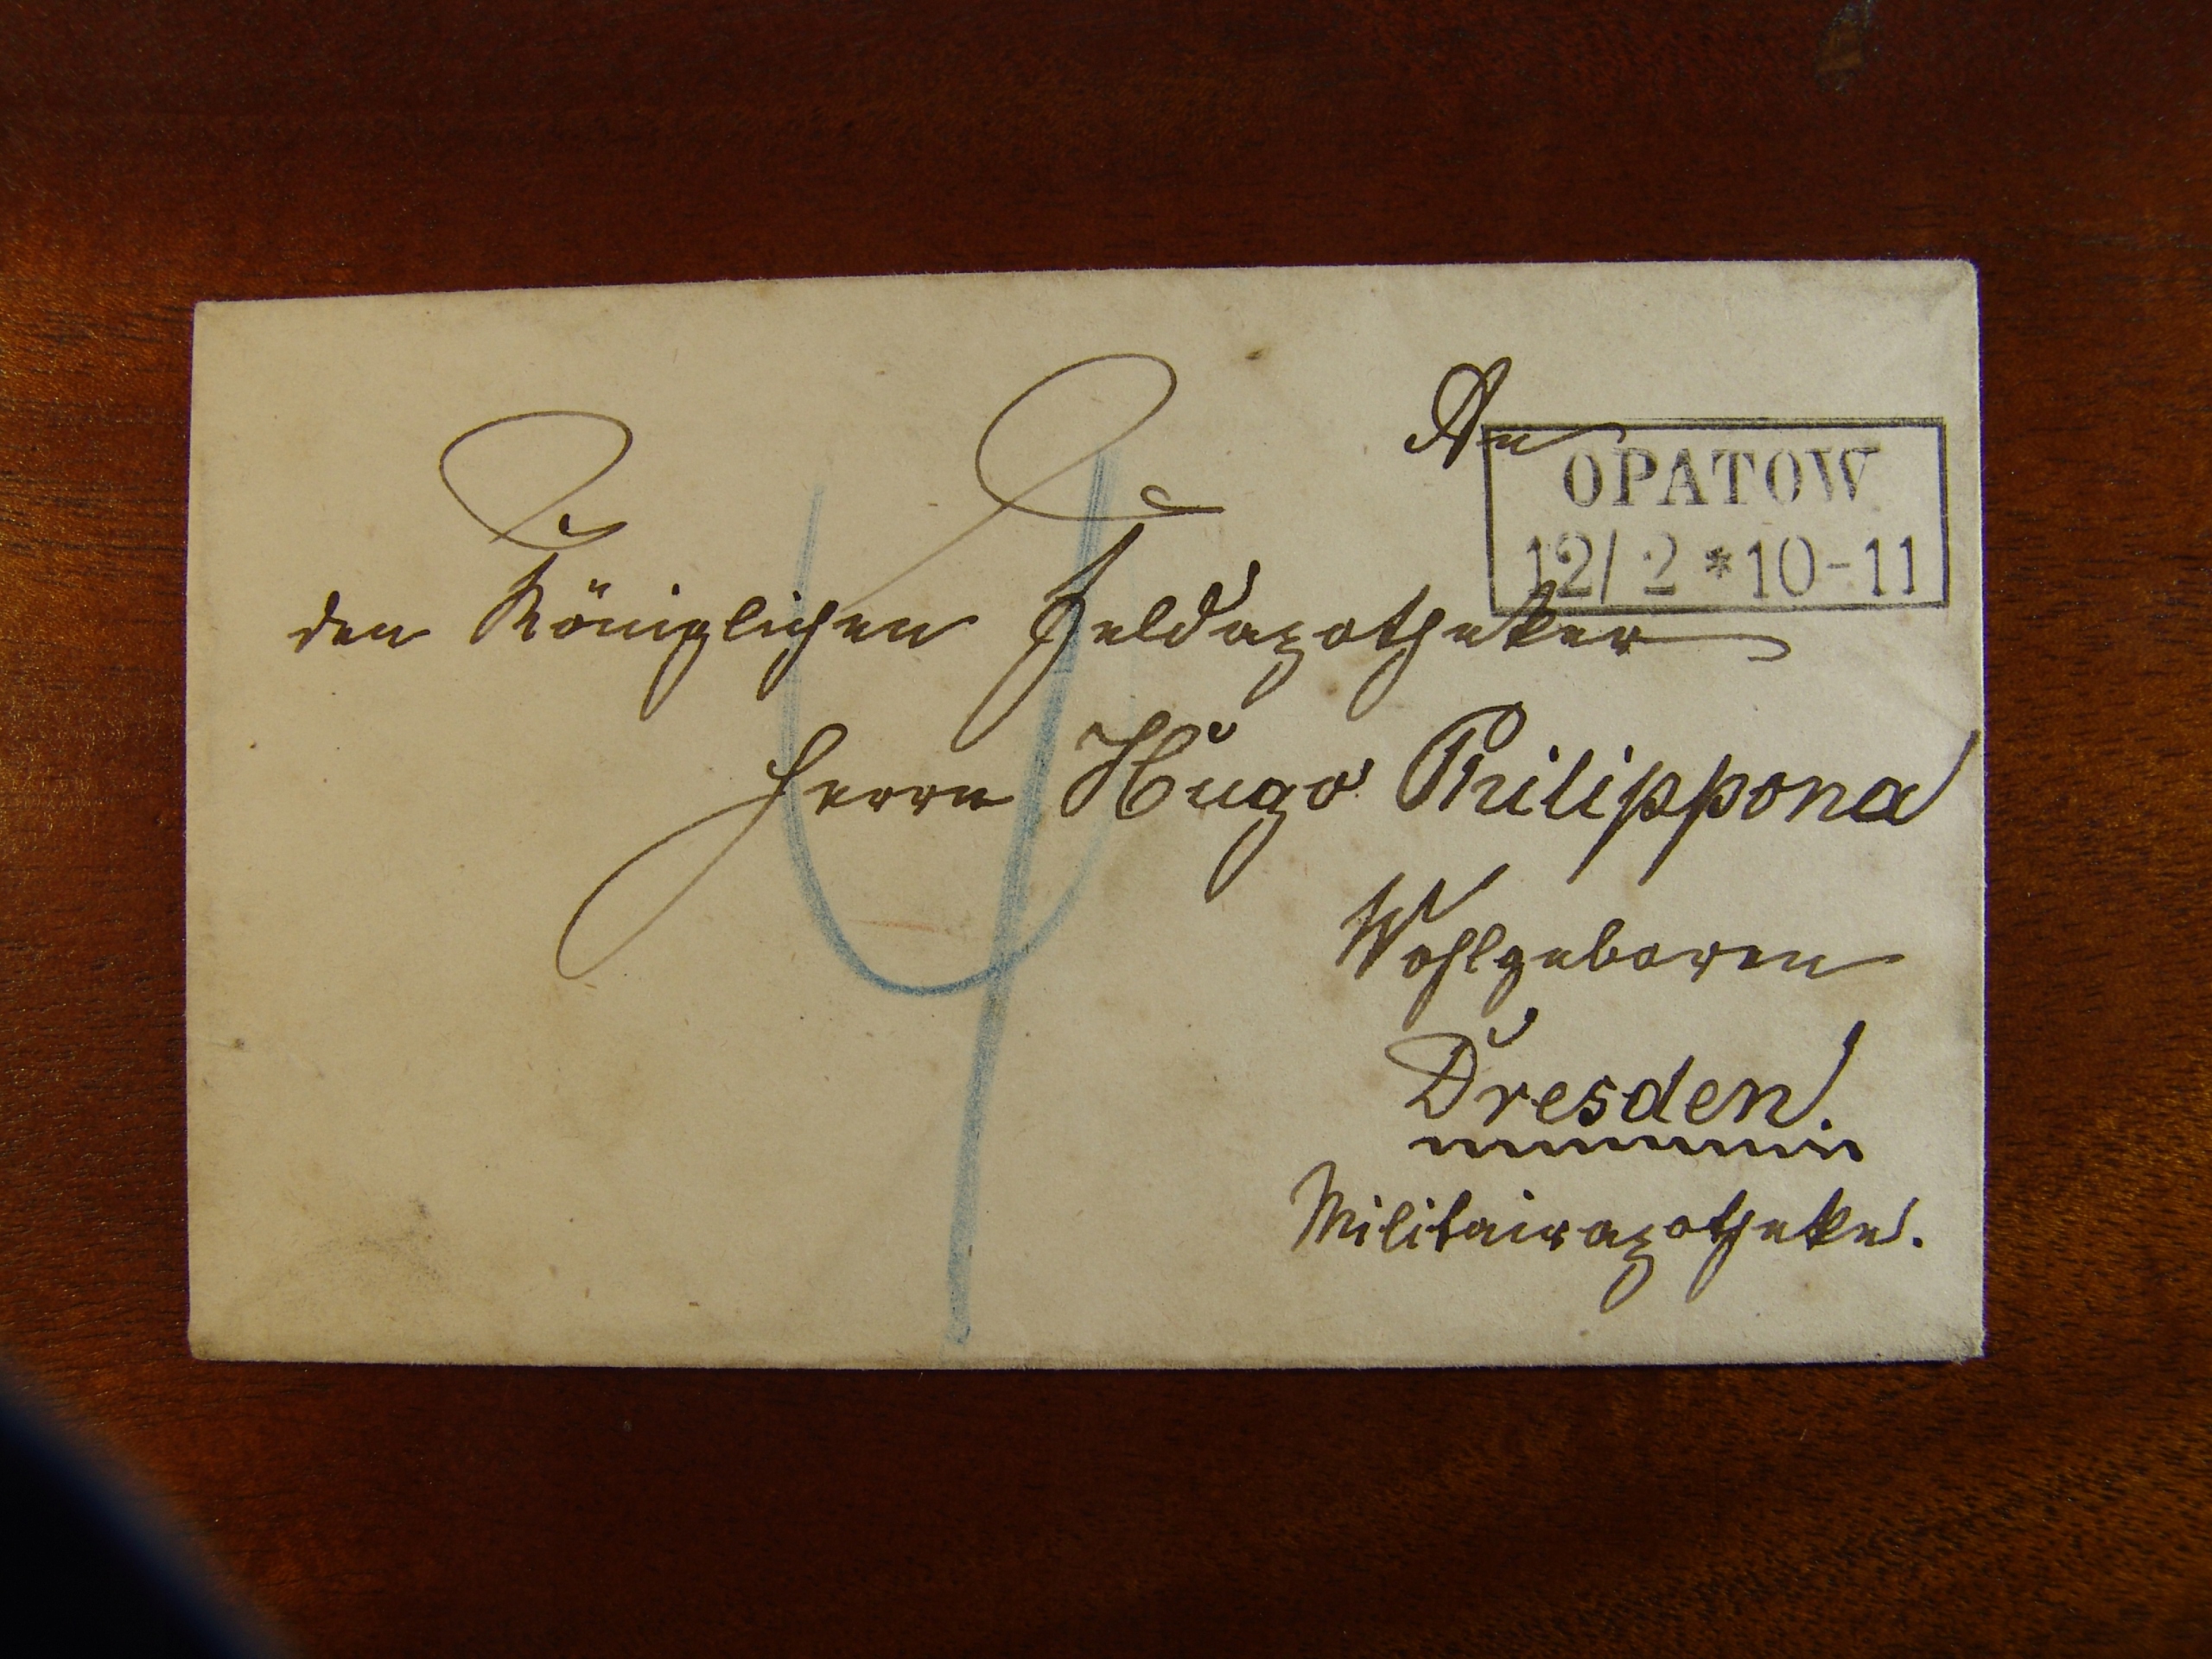 An
OPATOW
12/2 *10-11
den Königlichen Feldapotheker
Herrn Hugo Philippona
Wohlgeboren
Dresden.
Militairapotheke.
4